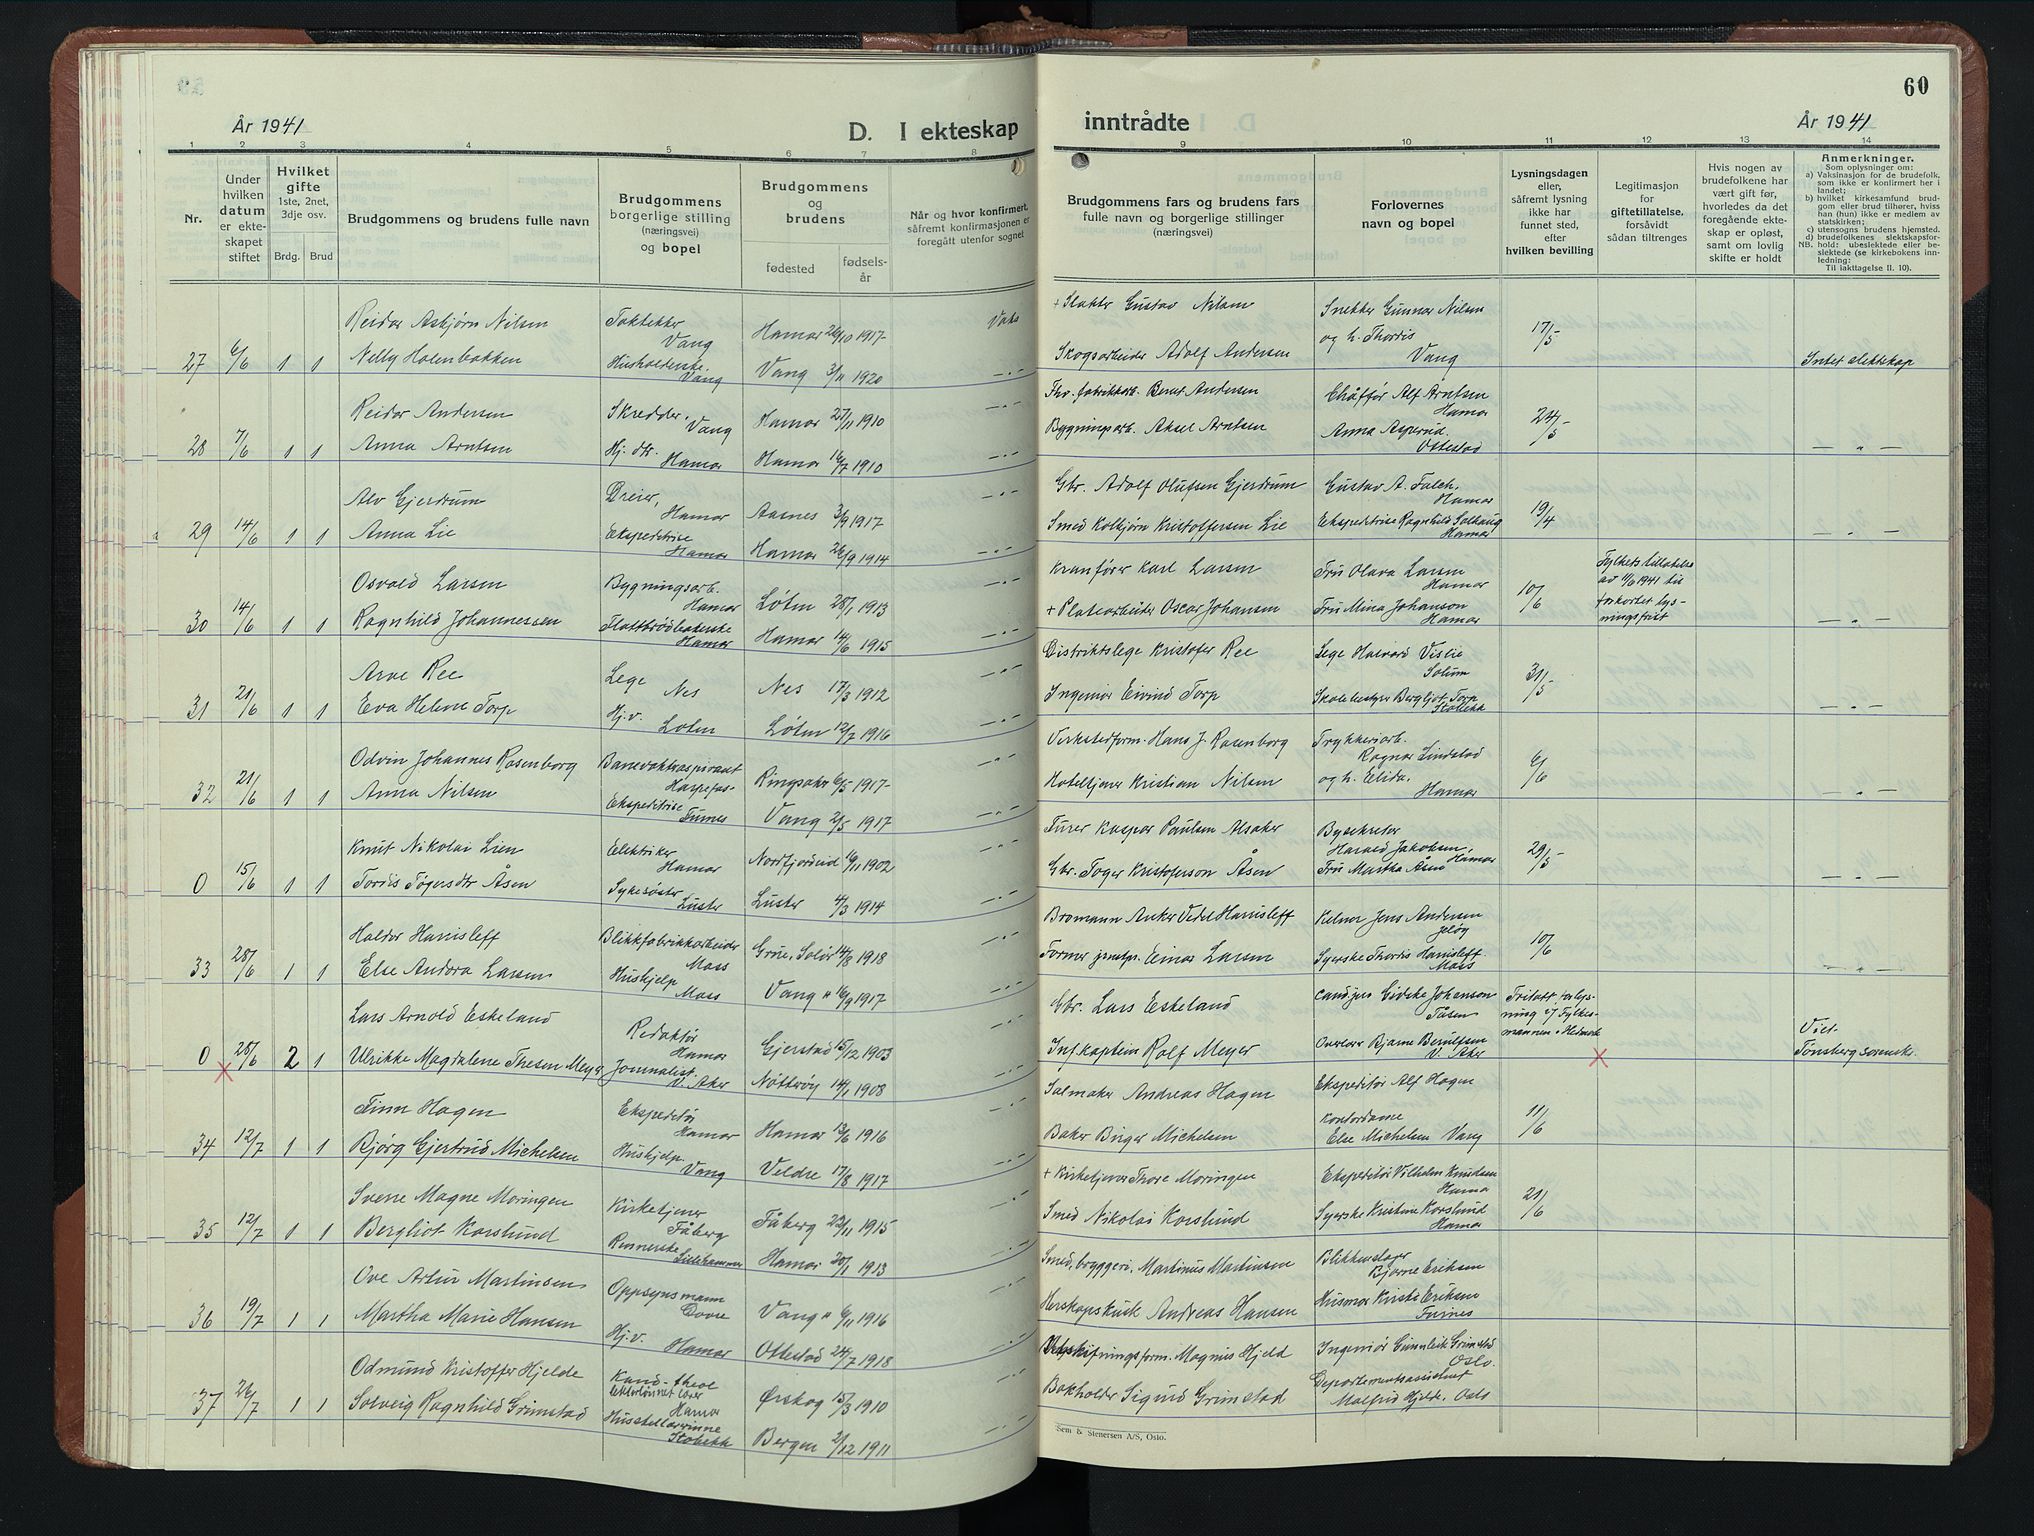 60
År 1941
D. I ekteskap inntrådte
År 1941
1 2 3 4 5 6 7 8 9 10 11 12 13 14
Nr.
Under hvilken datum er ekteskapet stiftet
Hvilket gifte 1ste, 2net, 3dje osv.
Brdg. Brud
Brudgommens og brudens fulle navn
Brudgommens borgerlige stilling (næringsvei) og bopel
Brudgommens og brudens
fødested
fødselsår
Når og hvor konfirmert, såfremt konfirmasjonen er foregått utenfor sognet
Brudgommens fars og brudens fars fulle navn og borgerlige stillinger (næringsvei)
Forlovernes navn og bopel
Lysningsdagen eller, såfremt lysning ikke har funnet sted, efter hvilken bevilling
Legitimasjon for giftetillatelse, forsåvidt sådan tiltrenges
Hvis nogen av brudefolkene har vært gift før, hvorledes da det foregående ekteskap er opløst, samt om lovlig skifte er holdt
Anmerkninger.
Som oplysninger om:
a) Vaksinasjon for de brudefolk, som ikke er konfirmert her i landet;
b) hvilket kirkesamfund brudgom eller brud tilhører, hviss han (hun) ikke er medlem av statskirken;
c) utensogns brudens hjemsted.
d) brudefolkenes slektskapsforhold: ubeslektede eller beslektede (se kirkebokens innledning:
NB.
Til iakttagelse II. 10).
Reidar Asbjørn Nilsen Taktekker Vang Hamar 26/10 1917 + Slakter Gustav Nilsen Snekker Gunnar Nilsen
27 6/6 1 1 Nelly Holenbakken Husholderske. Vang Vang 3/11 1920 —"— Skogsarbeider Adolf Andersen og h. Thordis Vang 17/5 Intet slektskap
Reidar Andersen Skredder, Vang Hamar 27/11 1910 —"— Fhv. fabrikkarb. Bernt Andersen Chåffør Alf Arntsen Hamar
28 7/6 1 1 Anna Arntsen Hj. dtr. Hamar Hamar 16/7 1910 —"— Bygningsarb. Aksel Arntsen Anna Asperud. Ottestad 24/5 —"—
Alv Gjerdrum Dreier, Hamar Aasnes 3/9 1917 —"— Gbr. Adolf Olufsen Gjerdrum Gustav A. Falch, Hamar
29 14/6 1 1 Anna Lie Ekspeditrise Hamar Hamar 26/9 1914 —"— Smed Kolbjørn Kristoffersen Lie Ekspeditrise Ragnhild Solhaug Hamar 19/4 —"—
Osvald Larsen Bygningsarb. Hamar Løten 28/1 1913 Kranfører Karl Larsen Fru Olava Larsen Hamar
30 14/6 1 1 Ragnhild Johannessen Flattbrødbakerske Hamar Hamar 14/6 1915 —"— + Platearbeider Oscar Johansen Fru Mina Johanson Hamar 10/6 Fylkets tillatelse av 11/6 1941 til forkortet lysningsfrist —"—
Arve Ree Lege Nes Nes 17/3 1912 —"— Distriktslege Kristofer Ree Lege Halvard Vislie Solum
31 21/6 1 1 Eva Helene Torp Hj.v. Løten Løten 12/7 1916 —"— Ingeniør Eivind Torp Skolebestyrer Bergljot Torp Stabekk 31/5 —"—
Odvin Johannes Rosenborg Banevoktraspirant Harpefos Ringsaker 6/5 1917 —"— Verkstedform. Hans J. Rosenborg Trykkeriarb. Ragnar Lindstad
32 21/6 1 1 Anna Nilsen Ekspeditrise Furnes Vang 2/5 1917 —"— Hotelltjener Kristian Nilsen og h. Elida, Hamar 6/6 —"—
Knut Nikolai Lien Elektriker Hamar Nordfjordeid 16/11 1902 —"— Furer Kaspar Paulsen Alsaker Bysekretær Harald Jakobsen, Hamar
0 15/6 1 1 Tordis Tøgersdtr Åsen Sykesøster Luster Luster 4/3 1914 —"— Gbr. Tøger Kristoferson Åsen Fru Martha Åsen 29/5 —"—
Haldor Hanisleff Blikkfabrikkarbeider Moss Grue, Solør 14/8 1918 —"— Bromann Anker Vedel Hanisleff Kelner Jens Andersen Jeløy
33 28/6 1 1 Else Andora Larsen Hushjelp Moss Vang " 16/9 1917 —"— Former Einar Larsen Syerske Thordis Hanisleff. Moss 10/6 —"—
Lars Arnold Eskeland Redaktør Hamar Gjerstad 15/12 1903 —"— Gbr. Lars Eskeland cand. jur Gidske Johanson Tåsen
0 28/6 2 1 Ulrikke Magdalene Thesen Meyer Journalist. V. Aker Nøtterøy 14/1 1908 —"— Inf. kaptein Rolf Meyer Overlærer Bjarne Berulfsen V. Aker Fritatt for lysning av Fylkesmannen i Hedmark Viet Tønsberg sorensk.
Finn Hagen Ekspeditør Hamar Hamar 13/6 1916 —"— Salmaker Andreas Hagen Ekspeditør Alf Hagen
34 12/7 1 1 Bjørg Gjertrud Michelsen Hushjelp Vang Veldre 17/8 1917 —"— Baker Birger Michelsen Kontordame Else Michelsen Vang 11/6
Sverre Magne Moringen Kirketjener Fåberg Fåberg 22/11 1915 —"— + Kirketjener Thore Moringen Ekspeditør Vilhelm Knudsen Hamar
35 12/7 1 1 Bergliot Korslund Lillehammer Hamar 20/1 1913 —"— Smed Nikolai Korslund Syerske Kristine Korslund Hamar 21/6
Ove Artur Martinsen Oppsynsmann Dovre Vang " 6/11 1916 —"— Smed, bryggeri. Martinus Martinsen Blikkenslager Bjarne Eriksen
36 19/7 1 1 Martha Marie Hansen Hj.v. Hamar Ottestad 24/7 1918 —"— Herskapskusk Andreas Hansen Husmor Kirsti Eriksen Furnes
Odmund Kristoffer Hjelde Kand. theol lektorlønnet lærer Hamar Ørskog 15/3 1910 —"— Magnus Hjeld Ingeniør Gunnleik Grimstad Oslo.
37 26/7 1 1 Solveig Ragnhild Grimstad Husstellærerinne Stabekk Bergen 2/12 1911 —"— Bokholder Sigurd Grimstad Departementsassistent Malfrid Hjelde, Oslo
Sem & Stenersen A/S, Oslo.